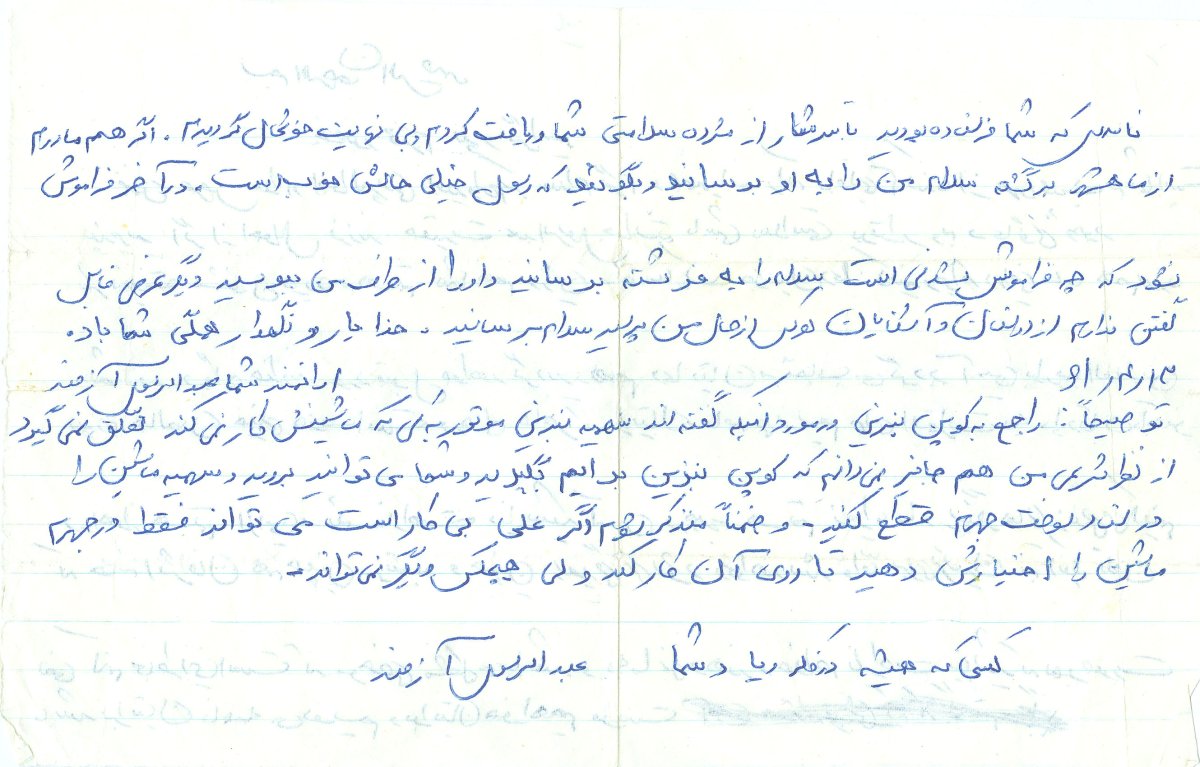 که شما فرستاده بودید با سرشار از مژده سلامتی شما دریافت کردم و بی نهایت خوشحال گردیدم . اگر هم مادرم
از ماهشهر برگشته سلام من را به او برسانید و بگوئید که رسول خیلی حالش خوب است . در آخر فراموش
نشود که چه فراموش نشدنی است سلام را به فرشته برسانید و او را از طرف من ببوسید دیگر عرض قابل
گفتن ندارم از دوستان و آشنایان کوس از حال من پرسید سلام برسانید . خدا یار و نگهدار همگی شما باد .
ارادتمند شما عبدالرسول آزمند
توضیحاً : راجع به کوپن بنزین در مورد اینکه گفته اند سهمیه بنزین موتور به کسی که ماشینش کار نمی کند تعلق نمی گیرد
از نظر شرعی من هم جایز نمی دانم که کوپن بنزین برایم بگیرید و شما می توانید بروید و سهمیه ماشین را
در جهرم قطع کنید - و ضمناً متذکر شوم اگر علی بی کار است می تواند فقط در جهرم
ماشین را اختیارش دهید تا روی آن کار کند ولی هیچکس دیگر نمی تواند -
کسی که همیشه در فکر و یاد شما عبدالرسول آزمند